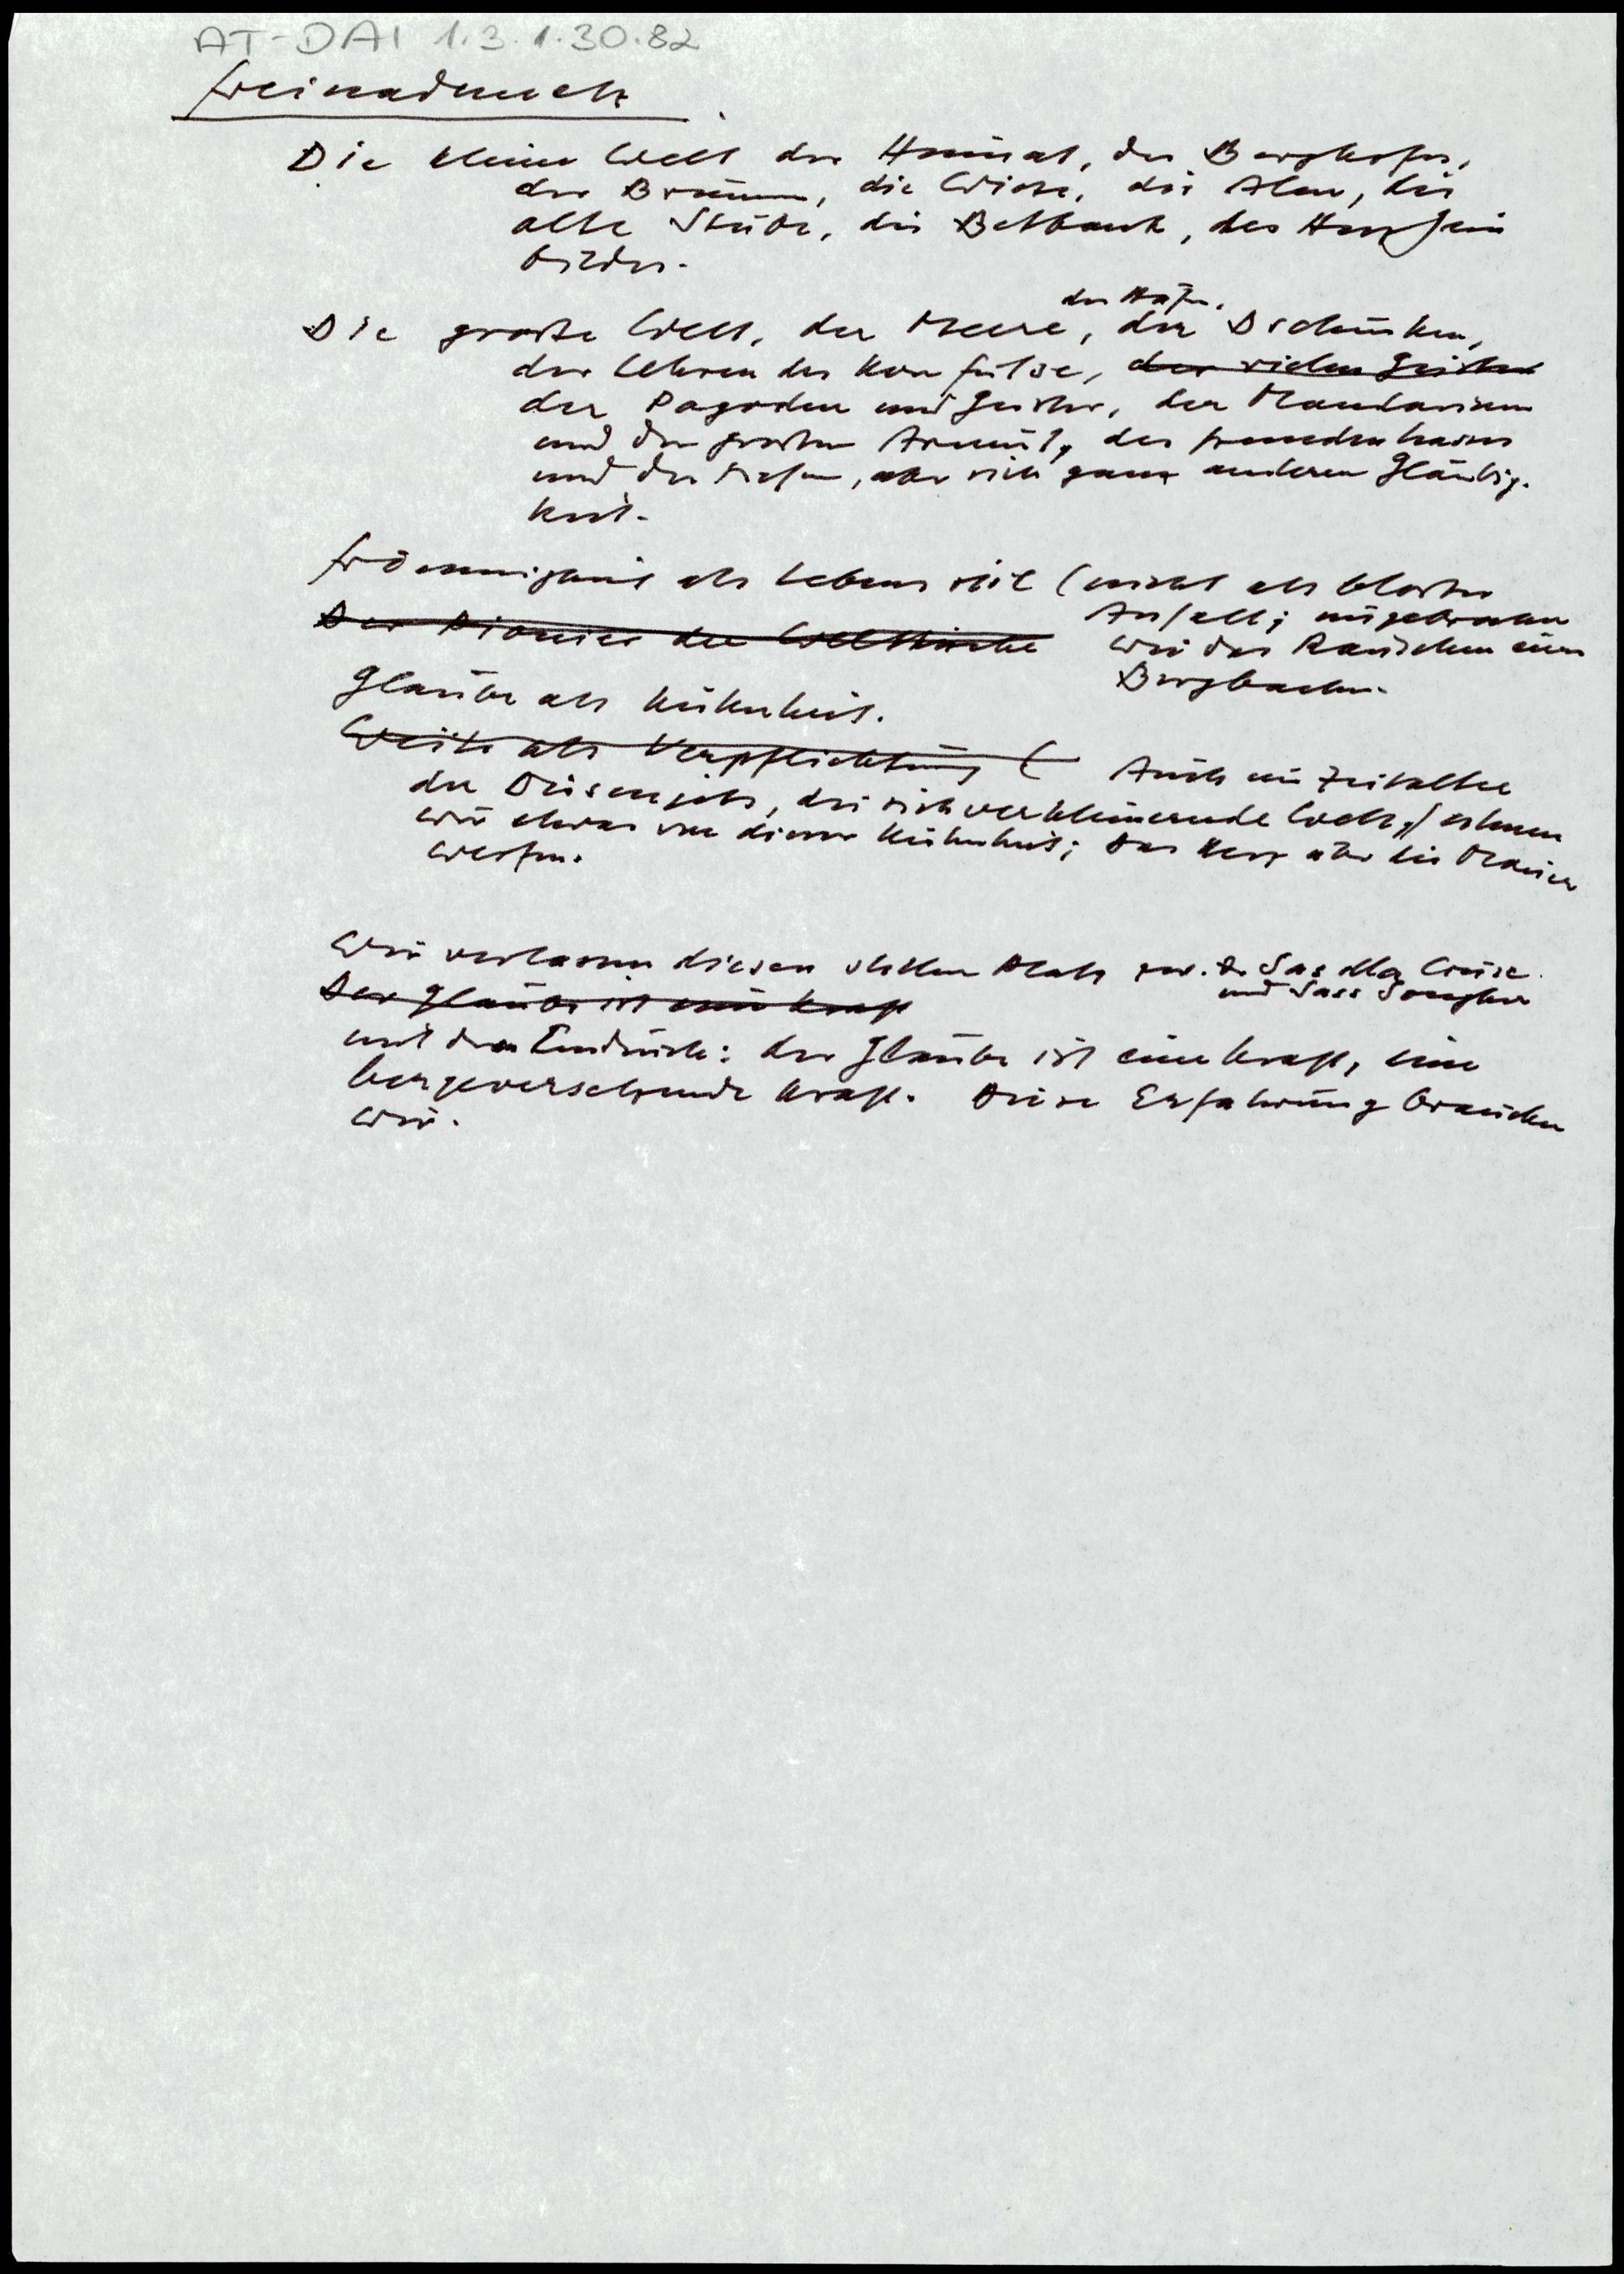 AT-DAI 1.3.1.30.82
Freinademetz
Die kleine Welt der Heimat, des Berghofes,
der Brunnen, die Wiese, die Alm, die
alte Stube, die Betbank, das Herz Jesu
bild.
der Häfen,
Die große Welt, der Meere, der Dschunken,
der Lehren des Konfutse, der vielen Geister
der Pagoden und Geister, der Mandarinen
und der großen Armut, des Fremdenhasses
und der tiefen, aber sich ganz anderen Gläubig-
keit.
Frömmigkeit als Lebensstil (nicht als bloßer
Der Pionier der Weltkirche Anfall; ungebrochen
wie das Rauschen eines
Bergbaches.
Glaube als Kühnheit.
Weite als Verpflichtung ( Auch im Zeitalter
der Düsenjets, die sich verkleinernde Welt,
wir etwas von dieser Kühnheit; das Herz über die Mauer
werfen.
Wir verlassen diesen stillen Platz zw. Sas dla Crusc
und Sass Songher
Der Glaube ist eine Kraft
mit dem Eindruck: der Glaube ist eine Kraft, eine
bergeversetzende Kraft. Diese Erfahrung brauchen
wir.